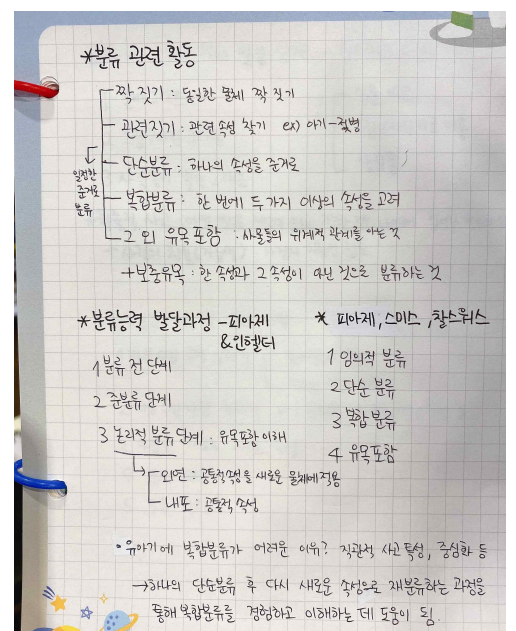 *분류 관련 활동
짝 짓기 : 동일한 물체 짝 짓기
관련짓기 : 관련 속성 찾기 ex) 아기-젖병
단순분류 : 하나의 속성을 준거로
일정한
준거로
분류
복합분류 : 한 번에 두 가지 이상의 속성을 고려
그 외 유목포함 : 사물들의 위계적 관계를 아는 것
+보충유목 : 한 속성과 그 속성이 아닌 것으로 분류하는 것
*분류능력 발달과정 -피아제
&인헬더
1 분류 전 단계
2 준분류 단계
3 논리적 분류 단계 : 유목포함 이해
외연 : 공통적속성을 새로운 물체에 적용
내포 : 공통적 속성
* 피아제, 스미스, 찰스워스
1 임의적 분류
2 단순 분류
3 복합 분류
4 유목포함
• 유아기에 복합분류가 어려운 이유? 직관적 사고 특성, 중심화 등
→하나의 단순분류 후 다시 새로운 속성으로 재분류하는 과정을
통해 복합분류를 경험하고 이해하는 데 도움이 됨.